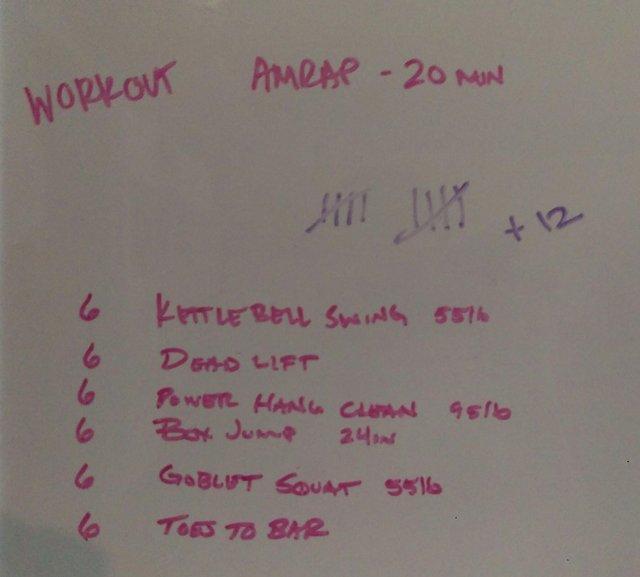 WORKOUT AMRAP - 20 MIN
+ 12
6 KETTLEBELL SWING 55lb
6 DEAD LIFT
6 POWER HANG CLEAN 95lb
6 BOX JUMP 24in
6 GOBLET SQUAT 55lb
6 TOES TO BAR